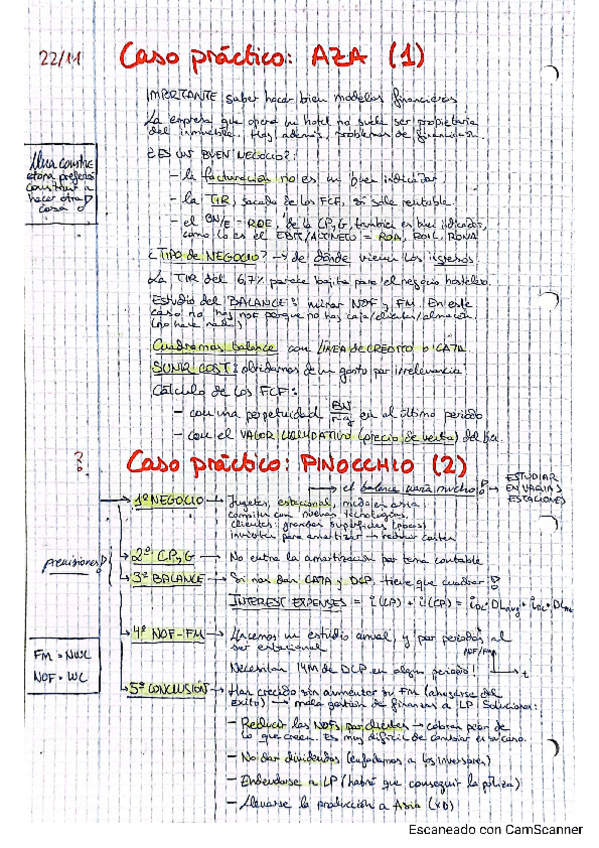 22/11
Caso práctico: AZA (1)
IMPORTANTE saber hacer bien modelos financieros
La empresa que opera un hotel no suele ser propietaria
del inmueble. Hay además, problemas de financiación.
¿ES UN BUEN NEGOCIO?:
- la facturación no es un buen indicador.
- la TIR, sacada de los FCF, si sale rentable.
- el BN/E = ROE, de la CP,G, también es buen indicador,
como lo es el EBIT/ALTINETO = ROA, ROIC, RONA
¿TIPO DE NEGOCIO? → de dónde vienen los ingresos.
La TIR del 6.7% parece bajita para el negocio hotelero.
Estudio del BALANCE: mirar NOF y FM. En este
caso no hay NOF porque no hay caja/clientes/almacén
(no hace nada)
Cuadramos balance con LÍNEA DE CRÉDITO o CAJA.
SUNK COST: olvidarnos de un gasto por irrelevancia
Cálculo de los FCF:
- con una perpetuidad en el último periodo
- con el VALOR LIQUIDATIVO (precio de venta) del
Una constructora prefiere
construir a
hacer otra
cosa
?
Caso práctico: PINOCCHIO (2)
el balance varía mucho! → ESTUDIAR
EN VARIAS
ESTACIONES
previsiones!
1º NEGOCIO → Juguetes, estacional, media en asia
compiten con nuevas tecnologías.
clientes: grandes superficies (pocos)
invierten para amortizar → reducir costes
2º CP,G → No entra la amortización por tema contable
3º BALANCE → Si nos dan CAJA y DCP, tiene que cuadrar!
INTEREST EXPENSES = i(LP) + i(CP) =
4º NOF-FM → Hacemos un estudio anual, y por periodos al
ser estacional
NOF/FM
Necesitan 14M de DCP en algún periodo!
t
FM = NWC
NOF = WC
5º CONCLUSIÓN → Han crecido sin aumentar su FM (ahogarse del
éxito) → mala gestión de financiación a LP Soluciones:
- Reducir las NOFs por clientes → cobras peor de
lo que crees. Es muy difícil de cambiar en su caso.
- No dar dividendos (enfadamos a los inversores)
- Endeudarse a LP (habrá que conseguir la póliza)
- Llevarse la producción a Asia (xD)
Escaneado con CamScanner